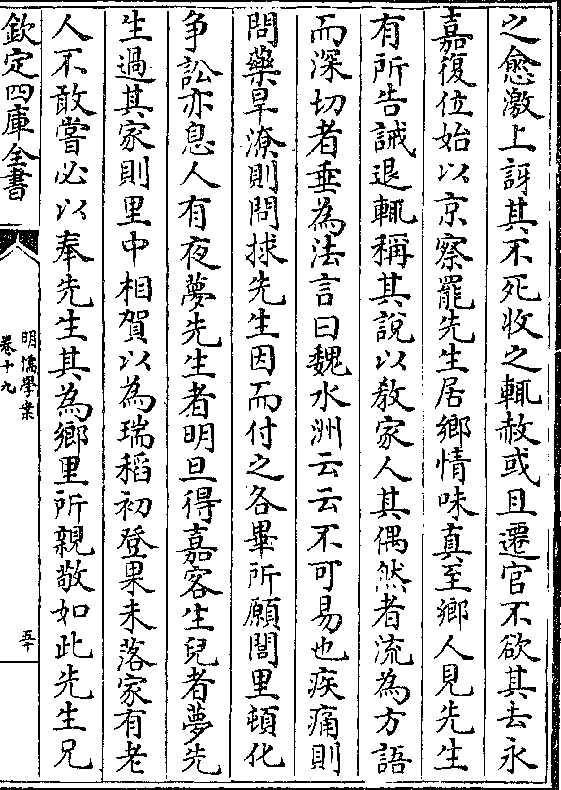 之愈激上訝其不死收之輒赦或且遷官不欲其去永
嘉復位始以京察罷先生居鄉情味真至鄉人見先生
有所告誡退輒稱其說以教家人其偶然者流為方語
而深切者垂為法言曰魏水洲云云不可易也疾痛則
問藥旱潦則問捄先生因而付之各畢所願閭里頓化
争訟亦息人有夜夢先生者明旦得嘉客生兒者夢先
生過其家則里中相賀以為瑞稻初登果未落家有老
人不敢嘗必以奉先生其為鄉里所親敬如此先生兄
欽定四庫全書
明儒學案
卷十九
五十